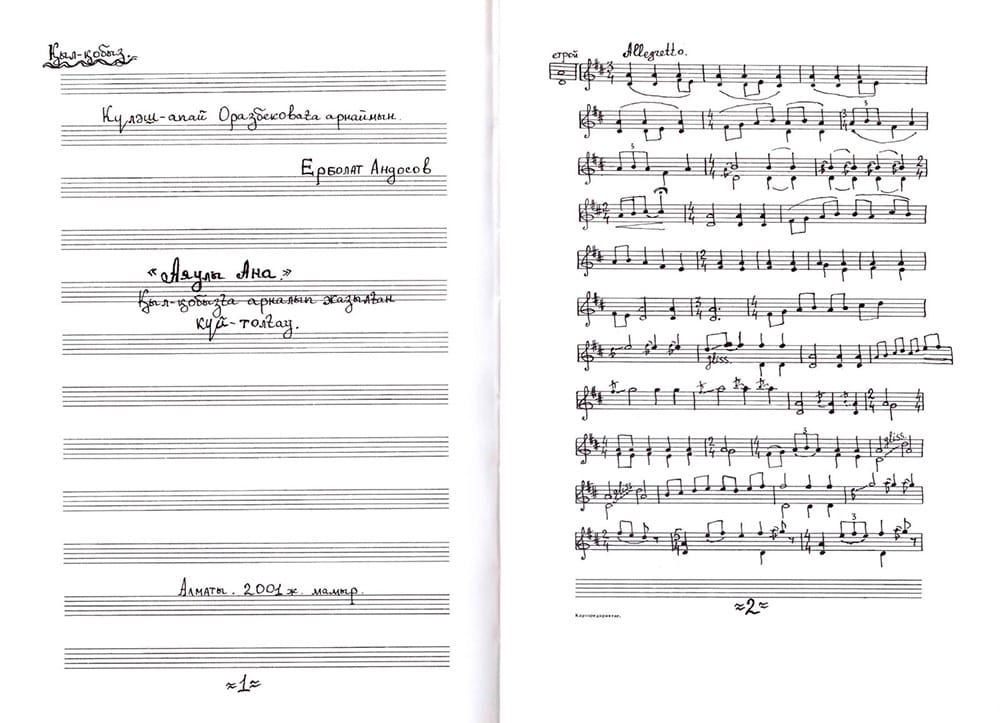 Қыл-қобыз.
Күләш-апай Оразбековаға арнаймын.
Ерболат Андосов
«Аяулы Ана.»
Қыл-қобызға арналып жазылған
күй-толғау.
Алматы. 2001 ж. мамыр.
≈1≈
строй
Allegretto.
3
3
gliss.
tr tr tr tr tr
3
gliss
gliss
3
≈2≈